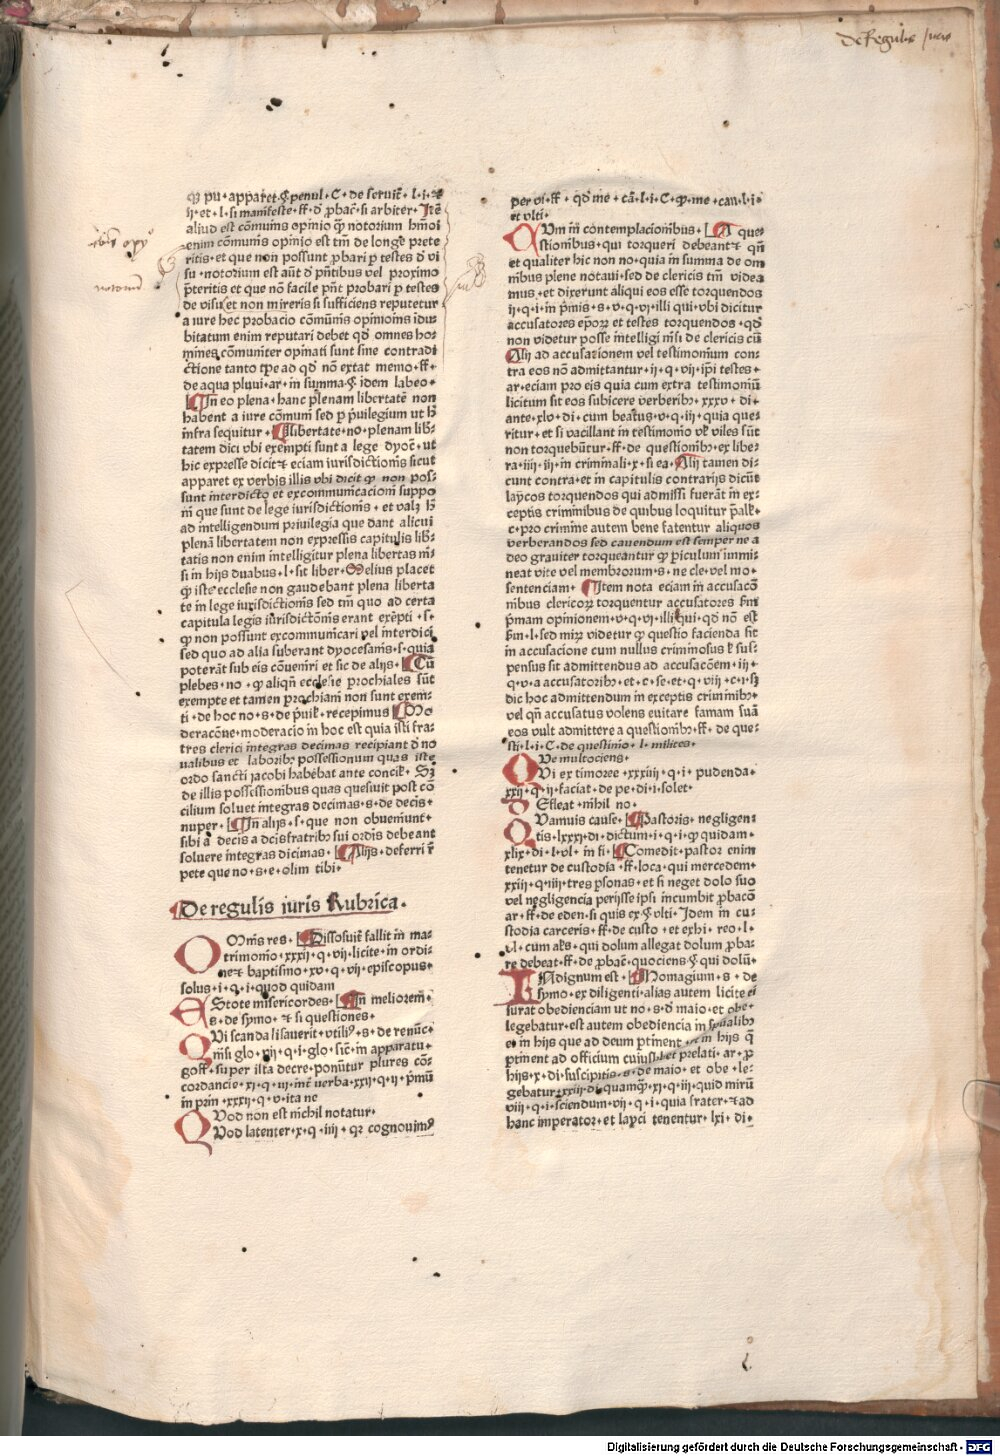 De regulis iuris
ꝙ pu · apparet · § penul · C · de seruit̄ · l · i · ⁊
ij · et · l · si manifeste · ff · d̓ ꝓbac̄ · si arbiter · Itē
aliud est cōmunis opinio qꝫ notorium hm̄oi
enim cōmunis opinio est tm̄ de longe prete
ritis · et que non possunt ꝓbari ꝑ testes d̓ vi
su · notorium est aūt d̓ pn̄tibus vel proximo
p̄teritis et que nō facile pn̄t probari ꝑ testes
de visu / et non mireris si sufficiens reputetur
a iure hec probacio cōmunis opinionis idu-
bitatum enim reputari debet qd̓ omnes ho-
mines cōmuniter opinati sunt sine contradi
ctione tanto tꝑe ad qd̓ nō extat memo · ff ·
de aqua pluui · ar · in summa · § idem labeo ·
In eo plena · hanc plenam libertatē non
habent a iure cōmuni sed ꝑ p̄uilegium ut hͦ
infra sequitur · libertate · no · plenam lib̓-
tatem dici vbi exempti sunt a lege dyoc̄ · ut
hic expresse dicit̄ ⁊ eciam iurisdictionis sicut
apparet ex verbis illis vbi dicit ꝙ non pos-
sunt interdicto et excommunicacioni suppo
ni que sunt de lege iurisdictionis · et val̓ꝫ hͦ
ad intelligendum priuilegia que dant alicui
plenā libertatem non expressis capitulis lib̓-
tatis non enim intelligitur plena libertas ni-
si in hijs duabus · l · sit liber · Melius placet
ꝙ iste ecclesie non gaudebant plena liberta
te in lege iurisdictionis sed tm̄ quo ad certa
capitula legis iurisdictōnis erant exēpti · s ·
ꝙ non possunt excommunicari vel interdici
sed quo ad alia suberant dyocesanis · s · quia
poterāt sub eis cōueniri et sic de alijs · Cū
plebes · no · ꝙ aliqn̄ ecclesie ꝓochiales sūt
exempte et tamen ꝓochiani non sunt exem-
ti · de hoc no · s · de p̄uil̓ · recepimus Mo
deracōne · moderacio in hoc est quia isti fra-
tres clerici integras decimas recipiant d̓ no
ualibus et laborib; possessionum quas iste
ordo sancti jacobi habebat ante concil̓ · Sꝫ
de illis possessionibus quas quesiuit post cō
cilium soluet integras decimas · s · de decis ·
nuper · In alijs · s · que non obueniunt ·
sibi a decis a dcis fratrib; sui ordīs debeant
soluere integras dicimas · Alijs · deferri r̄
pete que no · s · e · olim tibi ·
De regulis iuris Rubrica ·
Omnis res · Dissoluit̄ fallit in ma-
trimonio · xxxij · q · vij · licite · in ordi-
ne ⁊ baptismo · xv · q · vij · episcopus ·
solus · i · q · i · quod quidam
Estote misericordes · In meliorem ·
s · de symo · ⁊ si questiones ·
Qui scandalisauerit · vtiliꝰ · s · de renūc ·
nisi glo · vij · q · i · glo · sic̄ · in apparatu ·
goff · super ista decre · ponūtur plures cō-
cordancie · xj · q · iij · int̄ verba · xxij · q · ij · p̄mū
in prin̄ · xxxij · q · v · ita ne
Quod non est nichil notatur ·
Quod latenter · x · q · iiij · qꝛ cognouimꝰ
per vi · ff · qd̓ me · cā · l · i · C · ꝙ · me · cau · l · i ·
et vlti ·
Cum in contemplacionibus · A que
stionibus · qui torqueri debeant ⁊ qn̄
et qualiter hic non no · quia in summa de om
nibus plene notaui · sed de clericis tm̄ videa
mus · et dixerunt aliqui eos esse torquendos
ij · q · i · in p̄mis · s · v · q · vi · illi qui · vbi dicitur
accusatores ep̄oꝝ et testes torquendos · qd̓
non videtur posse intelligi nisi de clericis cū
Alij ad accusationem vel testimonium con-
tra eos nō admittantur · ij · q · vij · ip̄i testes ·
ar · eciam pro eis quia cum extra testimoniū
licitum sit eos subicere verberib; · xxxv · di ·
ante · xlv · di · cum beatus · v · q · ij · quia que-
ritur · et si vacillant in testimonio vl̓ viles sūt
non torquebūtur · ff · de questionib; · ex libe-
ra · iij · iij · in criminali · x · si ea · Alij tamen di-
cunt contra · et in capitulis contrarijs dicūt
laycos torquendos qui admissi fuerāt in ex-
ceptis criminibus de quibus loquitur p̄all̓ ·
c · pro crimine autem bene fatentur aliquos
verberandos sed cauendum est semper ne a
deo grauiter torqueantur ꝙ piculum immi-
neat vite vel membrorum · s · ne cle · vel mo ·
sentenciam · Item nota eciam in accusacō
nibus clericoꝝ torquentur accusatores sm̄
p̄mam opinionem · v · q · vi · illi qui · qd̓ nō est
sm̄ · l · sed miꝝ videtur ꝙ questio facienda sit
in accusacione cum nullus criminosus l̓ sus-
pensus sit admittendus ad accusacōem · iij ·
q · v · a accusatorib; · et · c · se · et · q · viij · c · i · sꝫ
dic hoc admittendum in exceptis criminib; ·
vel qn̄ accusatus volens euitare famam suā
eos vult admittere a questionib; · ff · de que-
sti · l · i · C · de questino · l · milites ·
Que multociens ·
Qui ex timore · xxxiiij · q · i · pudenda ·
xxij · q · ij · faciat · de pe · di · i · solet ·
Defleat · nihil no ·
Quamuis cause · Pastoris · negligen-
tis · lxxxj · di · dictum · i · q · i · ꝙ quidam ·
xlix · di · l · vl · in fi · Comedit · pastor enim
tenetur de custodia · ff · loca · qui mercedem ·
xxiij · q · iiij · tres ꝑsonas · et si neget dolo suo
vel negligencia perijsse ipsi incumbit ꝓbacō
ar · ff · de eden · si quis ex · § vlti · Idem in cu-
stodia carceris · ff · de custo · et exhi · reo · l ·
vl · cum aks · qui dolum allegat dolum ꝓba-
re debeat · ff · de ꝓbac̄ · quociens · § qui dolū ·
Indignum est · Homagium · s · de
symo · ex diligenti · alias autem licite ei
iurat obedienciam ut no · s · d̓ maio · et obe ·
legebatur · est autem obediencia in sp̄ualib;
ei in hijs que ad deum ꝑtinent · et in hijs q̄
ꝑtinent ad officium cuiuslibet prelati · ar · ꝓ
hijs · x · di · suscipitis · s · de maio · et obe · le-
gebatur · xxiij · di · quamqꝫ · xj · q · iij · quid mirū
viij · q · i · sciendum · vij · q · i · quia frater · ⁊ ad
hanc imperator · et layci tenentur · lxj · di ·
Digitalisierung gefördert durch die Deutsche Forschungsgemeinschaft - DFG